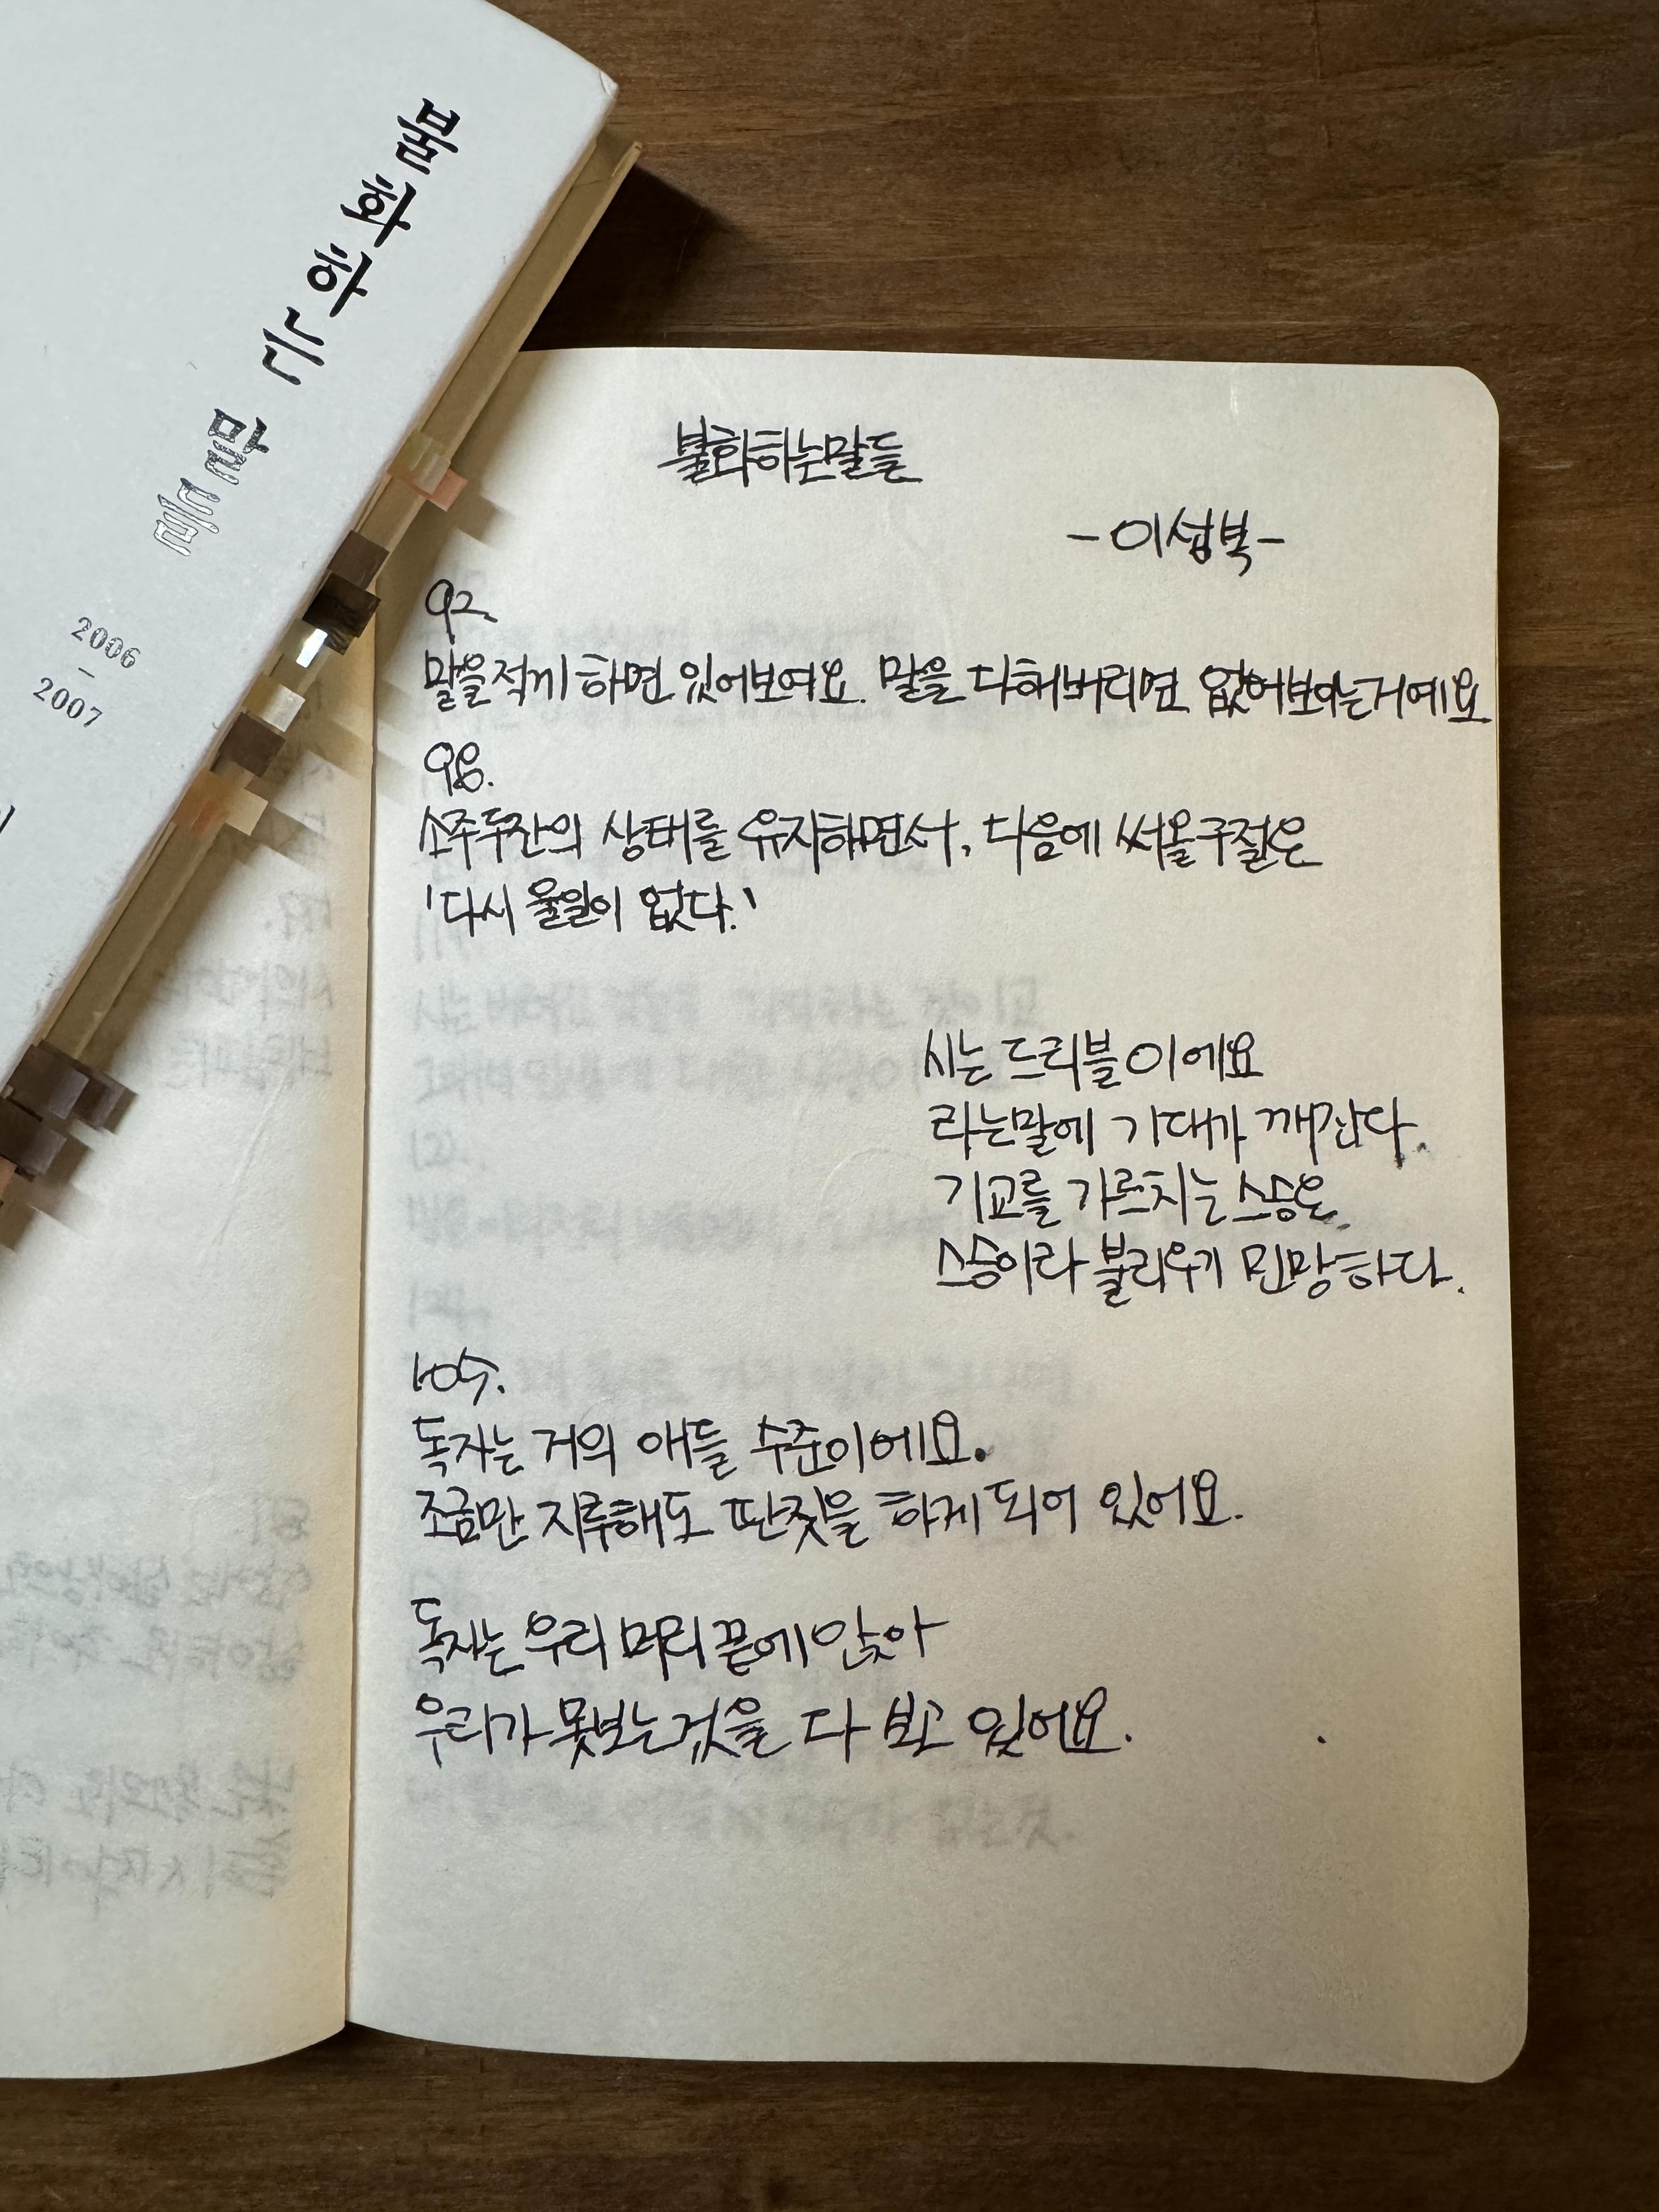 불화하는 말들
2006
–
2007
불화하는말들
-이성복-
92.
말을 적게 하면 있어보여요. 말을 다해버리면 없어보이는거예요
98.
소주두잔의 상태를 유지하면서, 다음에 써올구절은
'다시 올일이 없다.'
시는 드리블이에요
라는말에 기대가 깨진다.
기교를 가르치는 스승은
스승이라 불리우기 민망하다.
105.
독자는 거의 애들 수준이에요.
조금만 지루해도 딴짓을 하게 되어 있어요.
독자는 우리 머리 끝에 앉아
우리가 못보는것을 다 보고 있어요.